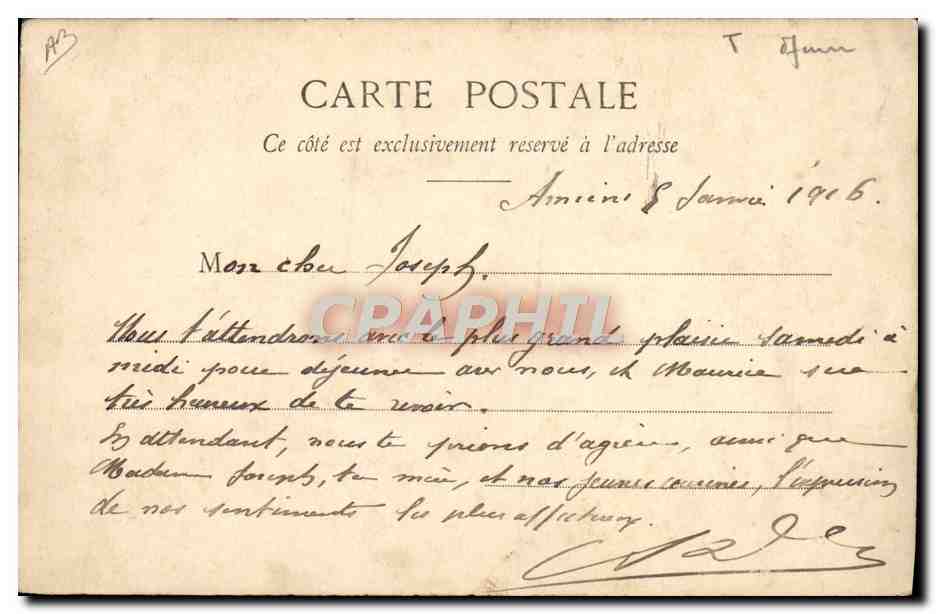 AB
T
CARTE POSTALE
Ce côté est exclusivement réservé à l'adresse
Amiens 5 Janvier 1916.
Mon cher Joseph.
CPAPHIL
Nous t'attendrons avec le plus grand plaisir samedi à
midi pour déjeuner avec nous, et Maurice sera
très heureux de te revoir.
En attendant, nous te prions d'agréer, ainsi que
Madame Joseph, ta mère, et nos jeunes cousines, l'expression
de nos sentiments les plus affectueux.